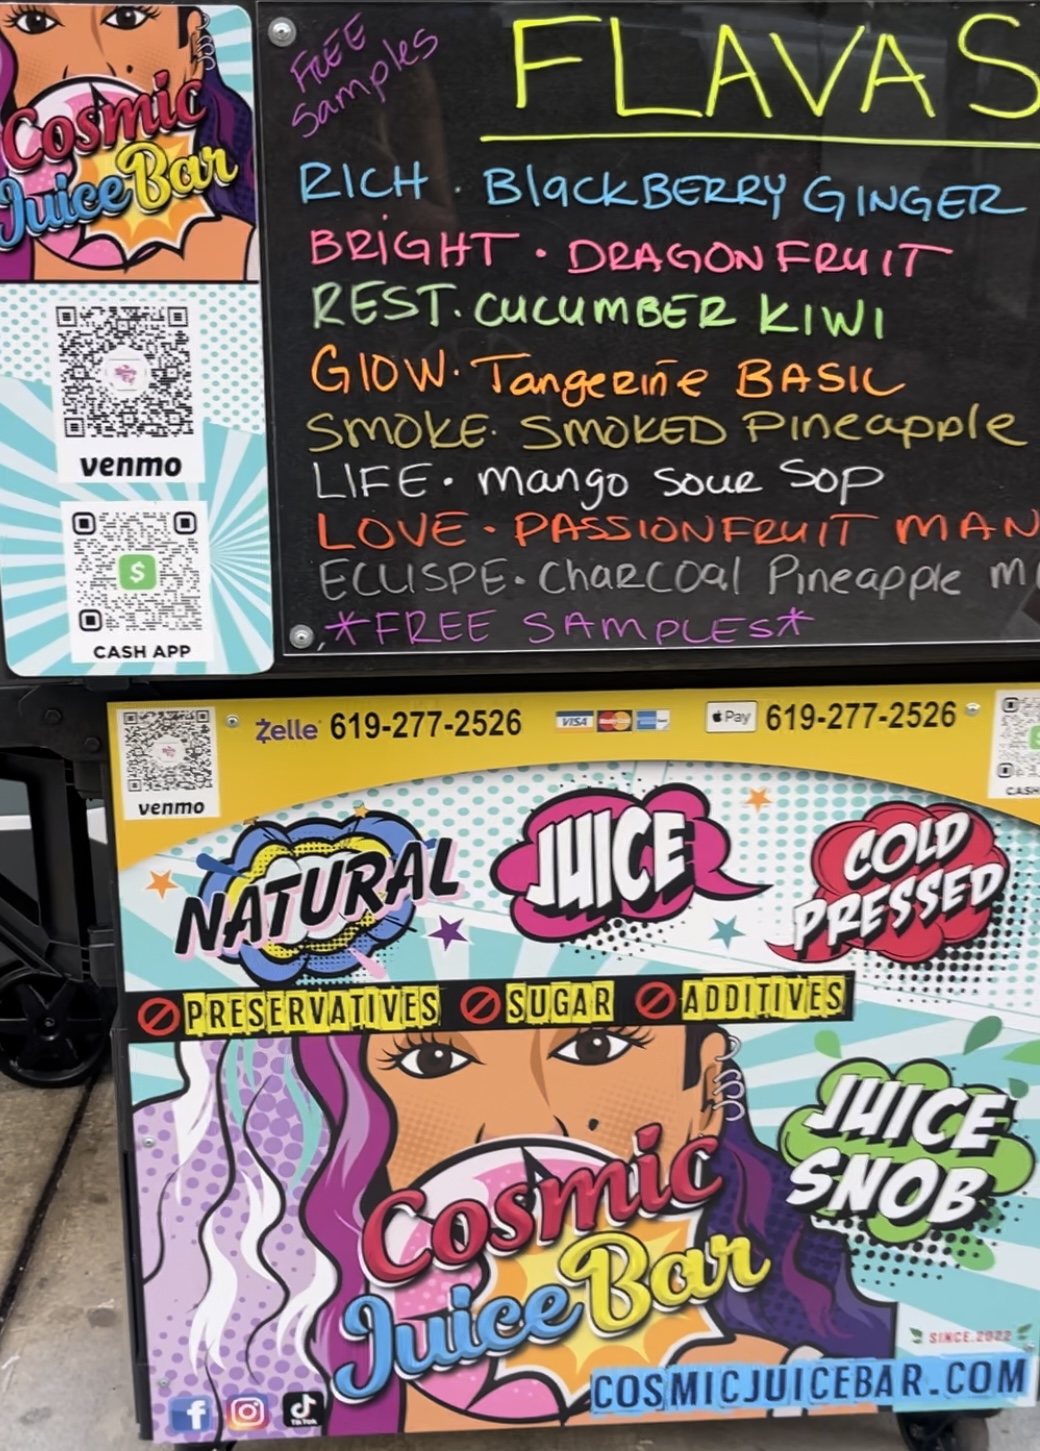 Cosmic
Juice Bar
venmo
$
CASH APP
FREE
Samples
FLAVAS
RICH . BlackBERRY GINGER
BRIGHT . DRAGONFRUIT
REST. CUCUMBER KIWI
GlOW. Tangerine BASIL
SMOKE. SMOKED Pineapple
LIFE. mango Sour Sop
LOVE . PASSIONFRUIT MAN
ECLISPE. CHARCOal Pineapple
*FREE SAMPLES*
venmo
Zelle 619-277-2526
VISA MasterCard
Pay 619-277-2526
CASH
NATURAL
JUICE
COLD
PRESSED
PRESERVATIVES SUGAR ADDITIVES
JUICE
SNOB
Cosmic
Juice Bar
SINCE.2022
COSMICJUICEBAR.COM
TikTok